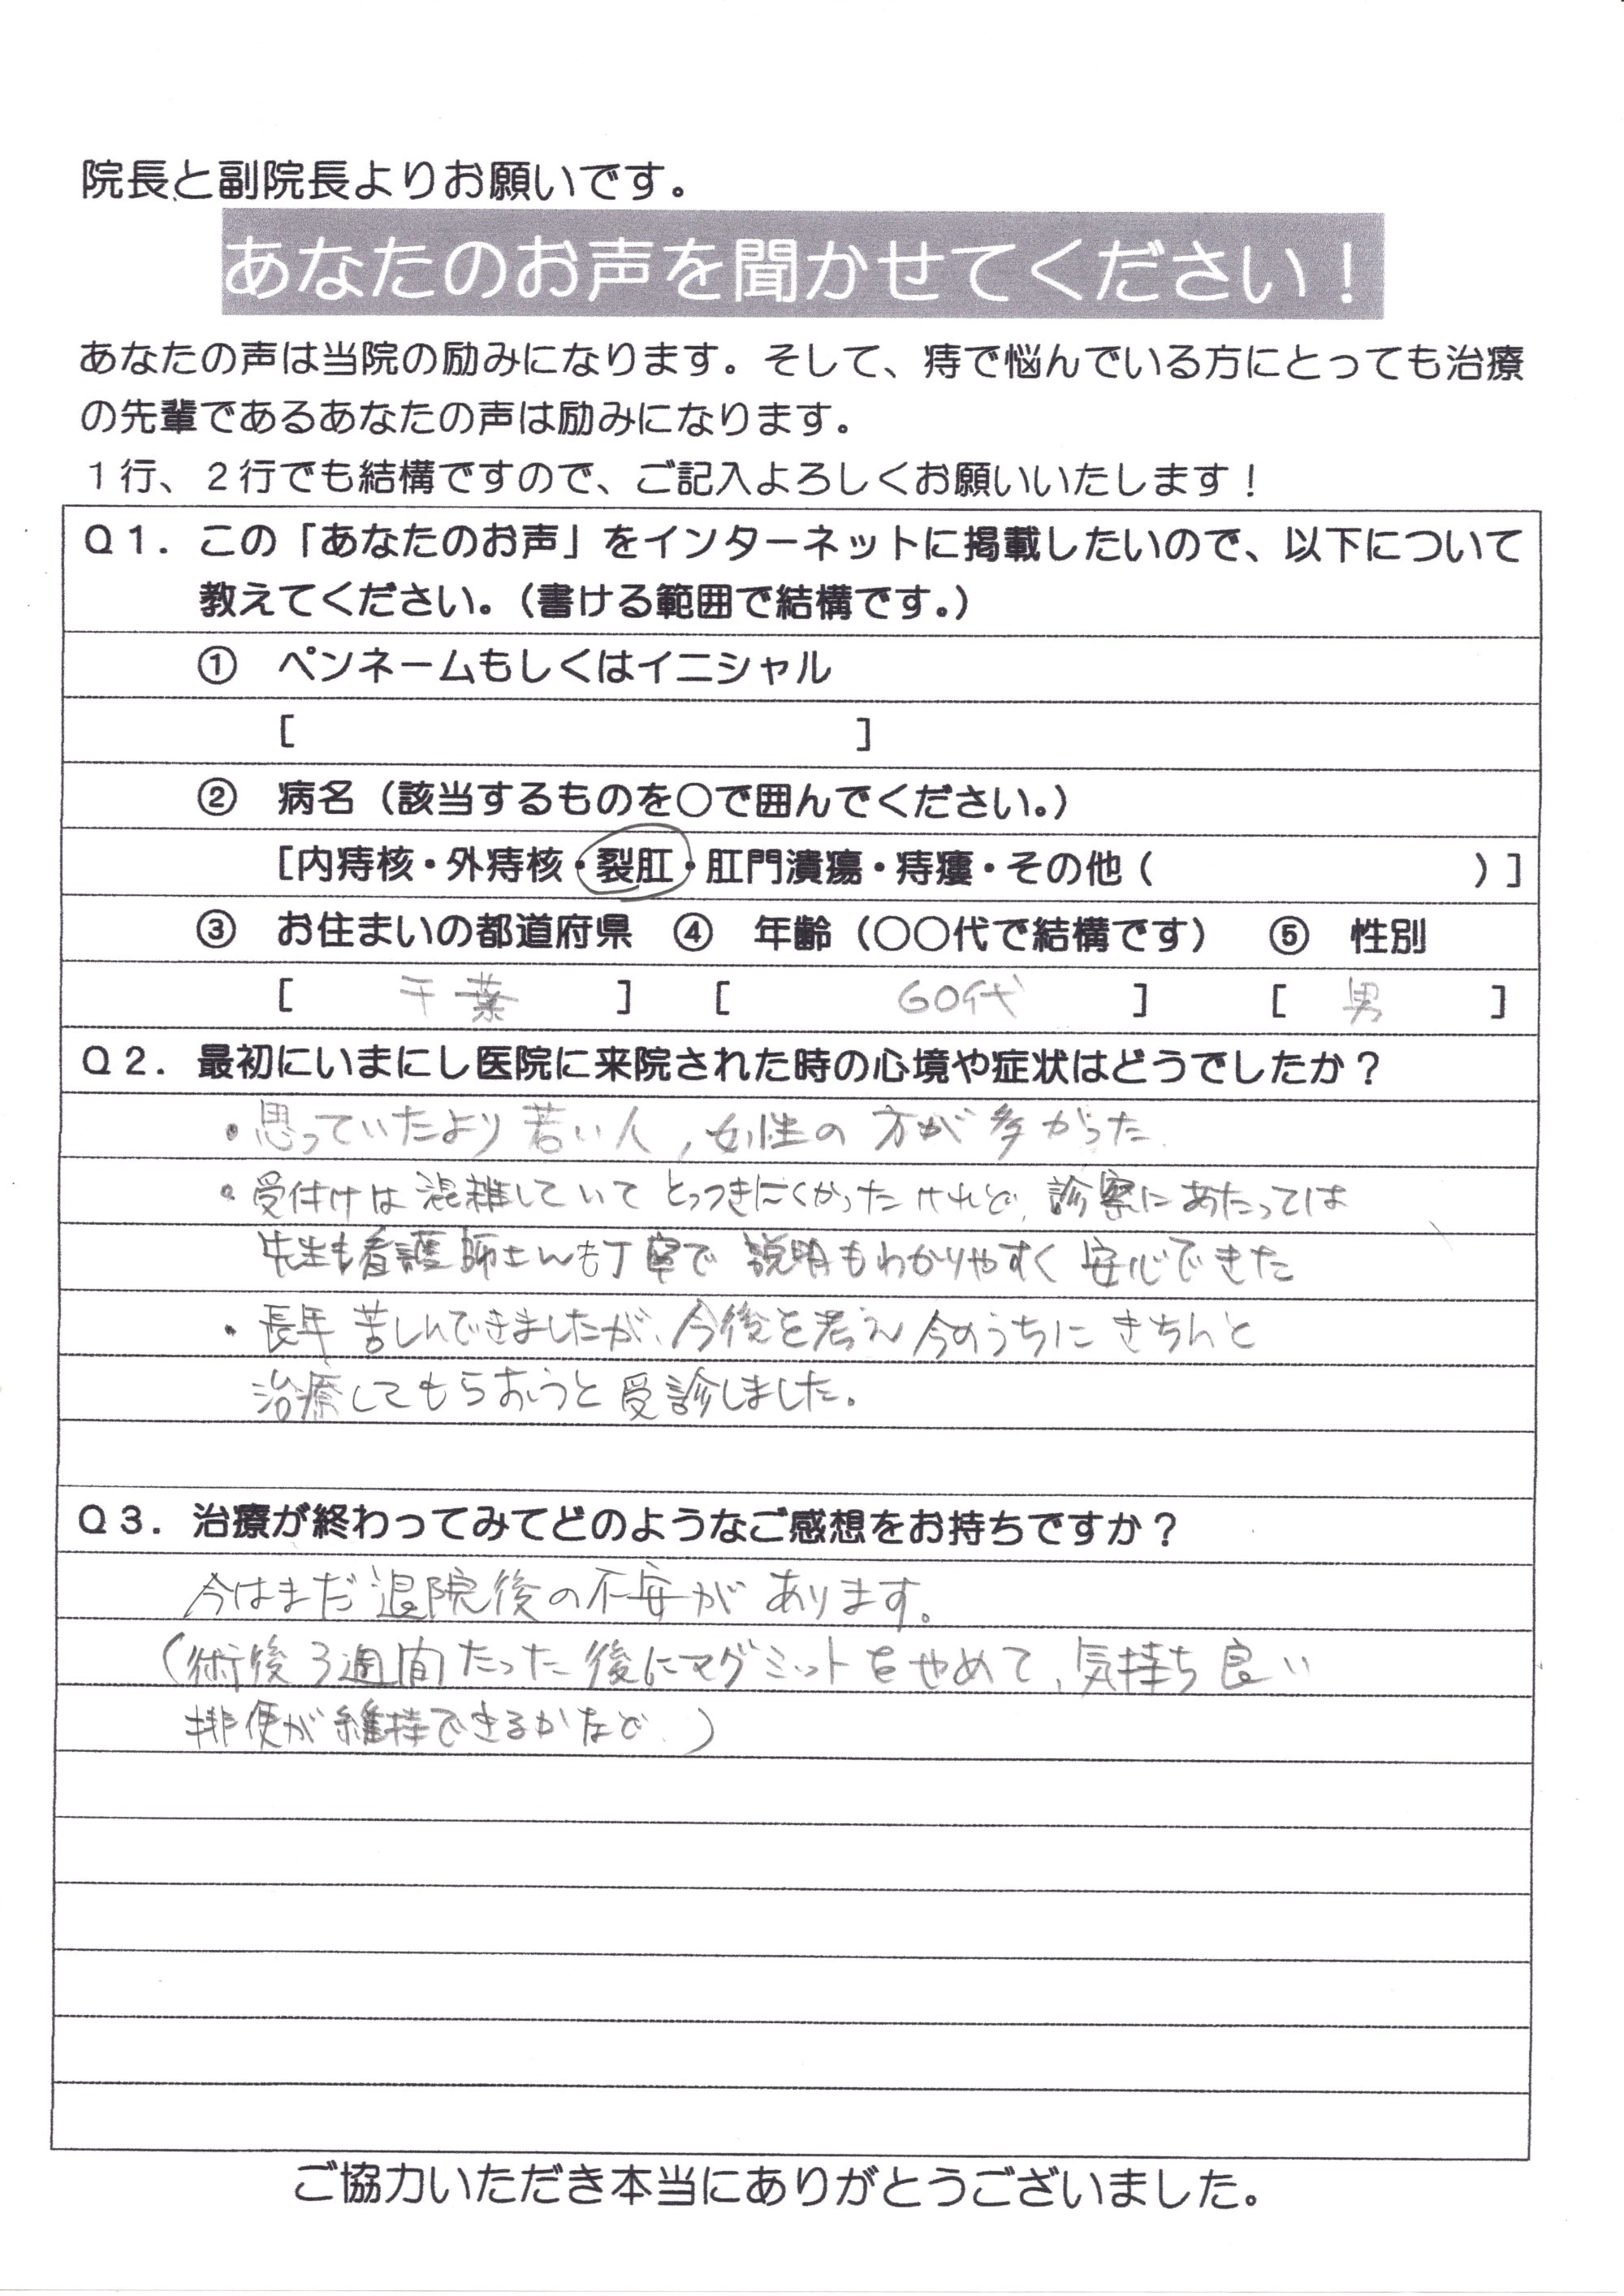 院長と副院長よりお願いです。
あなたのお声を聞かせてください！
あなたの声は当院の励みになります。そして、痔で悩んでいる方にとっても治療
の先輩であるあなたの声は励みになります。
１行、２行でも結構ですので、ご記入よろしくお願いいたします！
Ｑ１．この「あなたのお声」をインターネットに掲載したいので、以下について
教えてください。（書ける範囲で結構です。）
① ペンネームもしくはイニシャル
[ ]
② 病名（該当するものを○で囲んでください。）
[内痔核・外痔核・裂肛・肛門潰瘍・痔瘻・その他（ ）]
③ お住まいの都道府県 ④ 年齢（○○代で結構です） ⑤ 性別
[ 千葉 ] [ 60代 ] [ 男 ]
Ｑ２．最初にいまにし医院に来院された時の心境や症状はどうでしたか？
・思っていたより若い人，女性の方が多かった
・受付けは混雑していてとっつきにくかったけれど、診察にあたっては
先生も看護師さんも丁寧で説明もわかりやすく安心できた
・長年苦しんできましたが、今後を考え今のうちにきちんと
治療してもらおうと受診しました。
Ｑ３．治療が終わってみてどのようなご感想をお持ちですか？
今はまだ退院後の不安があります。
（術後３週間たった後にマグミットをやめて、気持ち良い
排便が維持できるかなど）
ご協力いただき本当にありがとうございました。